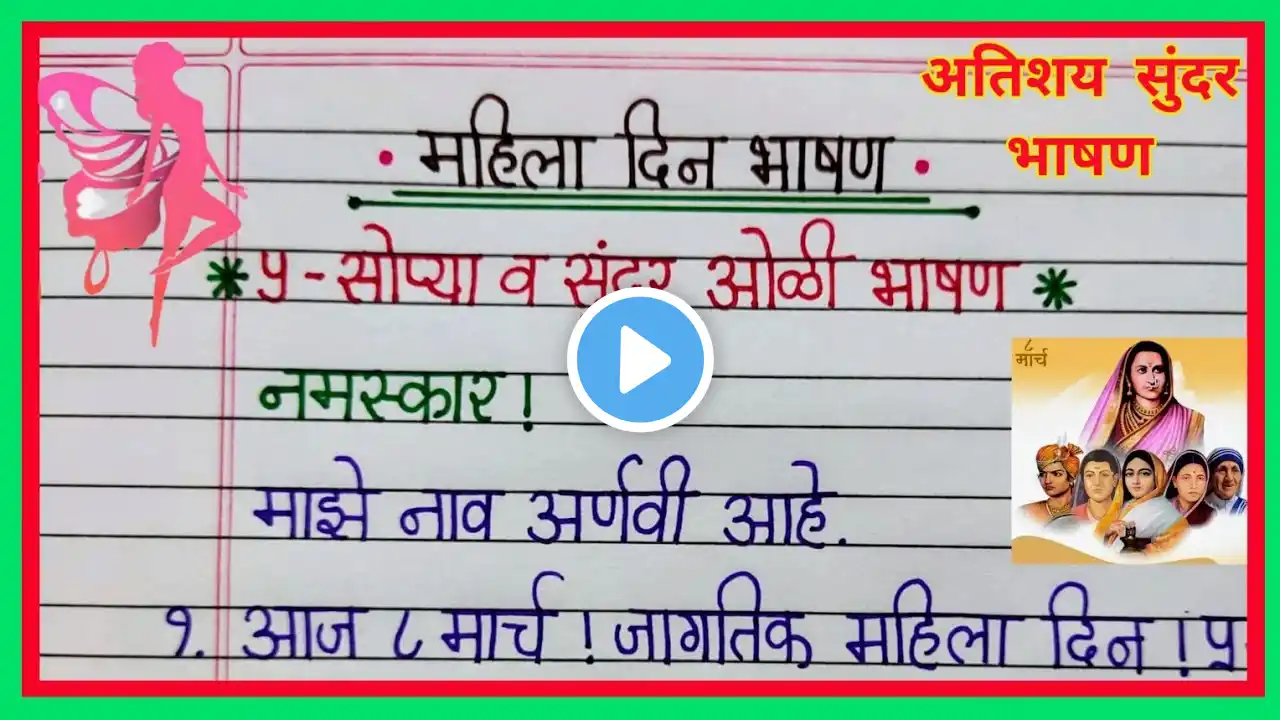 अतिशय सुंदर
भाषण
• महिला दिन भाषण •
* ५ - सोप्या व सुंदर ओळी भाषण *
नमस्कार !
माझे नाव अर्णवी आहे.
१. आज ८ मार्च ! जागतिक महिला दिन !
८
मार्च